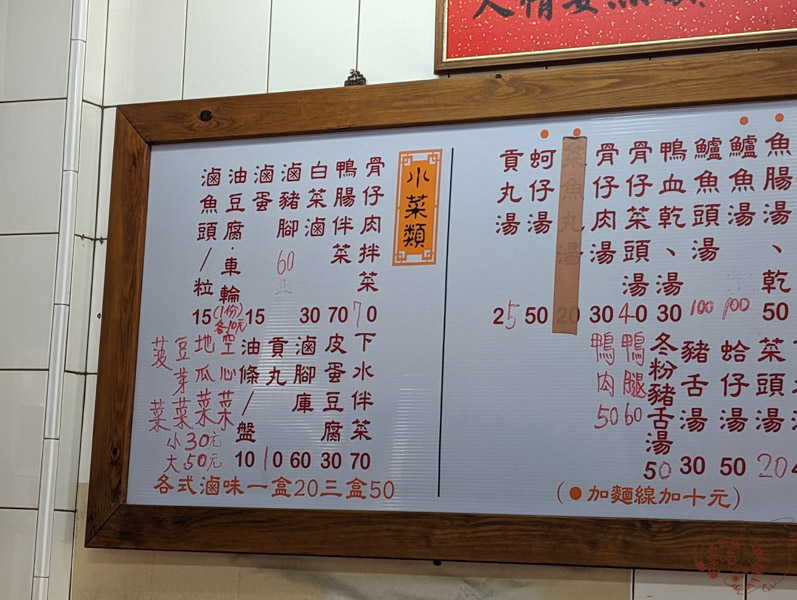 魚腸湯、乾 50
鱸魚湯 100
鱸魚頭湯 100
鴨血乾、湯 30
骨仔菜頭湯 40
骨仔肉湯 30
魚丸湯 20
蚵仔湯 50
貢丸湯 25
菜頭湯 20
蛤仔湯 50
豬舌湯 30
冬粉豬舌湯 50
鴨腿 60
鴨肉 50
(●加麵線加十元)
小菜類
骨仔肉拌菜 70
鴨腸伴菜 70
白菜滷 30
滷豬腳 60
滷蛋 15
油豆腐．車輪 (1份)各10元
滷魚頭/粒 15
下水伴菜 70
皮蛋豆腐 30
滷腳庫 60
貢丸 10
油條/盤 10
空心菜
地瓜菜
豆芽菜
菠菜
小30元
大50元
各式滷味一盒20三盒50